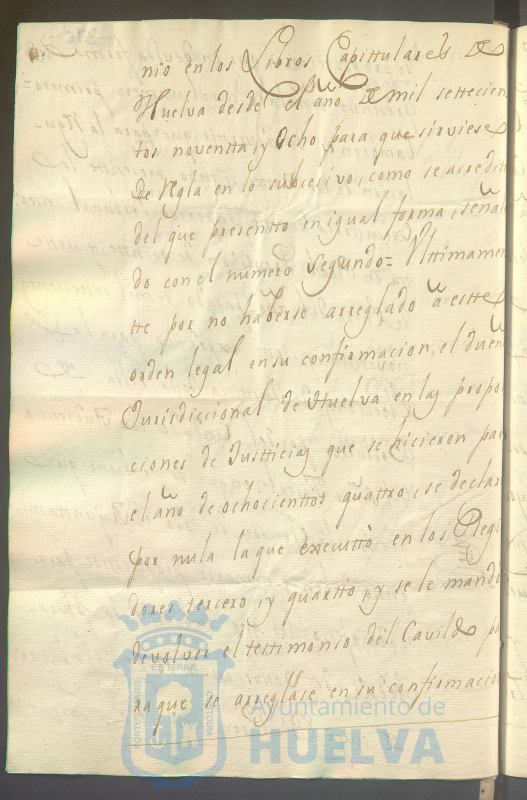 nio en los Libros Capittulares de
Huelva desdel el año de mil settecien
tos noventta, y Ocho para que sirviese
de regla en lo subcesivo, como se acredita
del que presentto en igual forma, señala
do con el numero segundo = Ulttimamen
tte por no haberse arreglado a estte
orden legal, en su confirmacion, el dueño
Jurisdiccional de Huelva en las propo
ciones de Justticias que se hicieron para
el año de ochocienttos quattro, se declar
por nula la que executtò en los Regi
dores tercero, y quartto, y se le mando
devolver el testimonio del Cavildo pa
ra que se arreglase en su confirmacio
PORTUS MARIS
ET TERRÆ
CUSTODIA
Ayuntamiento de
HUELVA